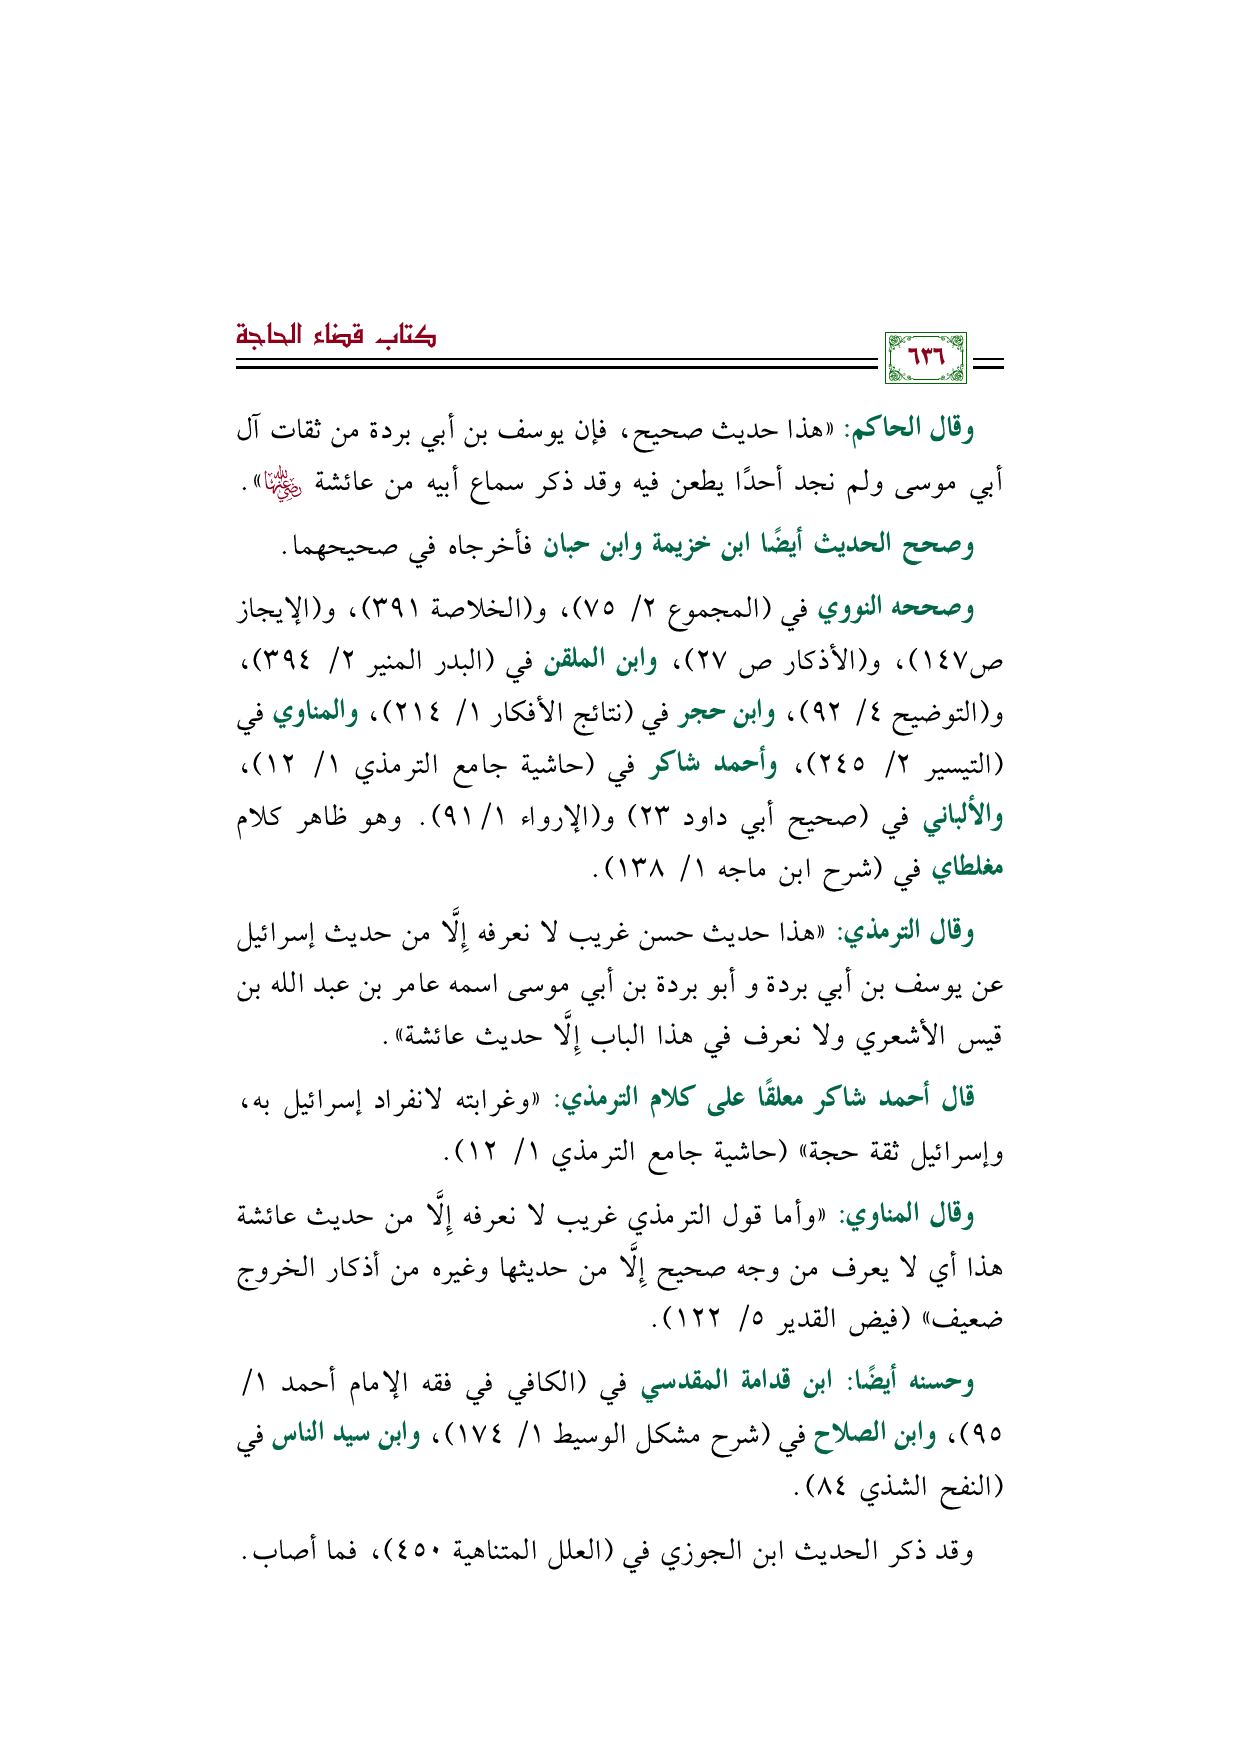 كتاب قضاء الحاجة
٦٣٦
وقال الحاكم: «هذا حديث صحيح، فإن يوسف بن أبي بردة من ثقات آل
أبي موسى ولم نجد أحدًا يطعن فيه وقد ذكر سماع أبيه من عائشة رضي الله عنها».
وصحح الحديث أيضًا ابن خزيمة وابن حبان فأخرجاه في صحيحهما.
وصححه النووي في (المجموع ٢/ ٧٥)، و(الخلاصة ٣٩١)، و(الإيجاز
ص١٤٧)، و(الأذكار ص ٢٧)، وابن الملقن في (البدر المنير ٢/ ٣٩٤)،
و(التوضيح ٤/ ٩٢)، وابن حجر في (نتائج الأفكار ١/ ٢١٤)، والمناوي في
(التيسير ٢/ ٢٤٥)، وأحمد شاكر في (حاشية جامع الترمذي ١/ ١٢)،
والألباني في (صحيح أبي داود ٢٣) و(الإرواء ١/ ٩١). وهو ظاهر كلام
مغلطاي في (شرح ابن ماجه ١/ ١٣٨).
وقال الترمذي: «هذا حديث حسن غريب لا نعرفه إِلَّا من حديث إسرائيل
عن يوسف بن أبي بردة و أبو بردة بن أبي موسى اسمه عامر بن عبد الله بن
قيس الأشعري ولا نعرف في هذا الباب إِلَّا حديث عائشة».
قال أحمد شاكر معلقًا على كلام الترمذي: «وغرابته لانفراد إسرائيل به،
وإسرائيل ثقة حجة» (حاشية جامع الترمذي ١/ ١٢).
وقال المناوي: «وأما قول الترمذي غريب لا نعرفه إِلَّا من حديث عائشة
هذا أي لا يعرف من وجه صحيح إِلَّا من حديثها وغيره من أذكار الخروج
ضعيف» (فيض القدير ٥/ ١٢٢).
وحسنه أيضًا: ابن قدامة المقدسي في (الكافي في فقه الإمام أحمد ١/
٩٥)، وابن الصلاح في (شرح مشكل الوسيط ١/ ١٧٤)، وابن سيد الناس في
(النفح الشذي ٨٤).
وقد ذكر الحديث ابن الجوزي في (العلل المتناهية ٤٥٠)، فما أصاب.